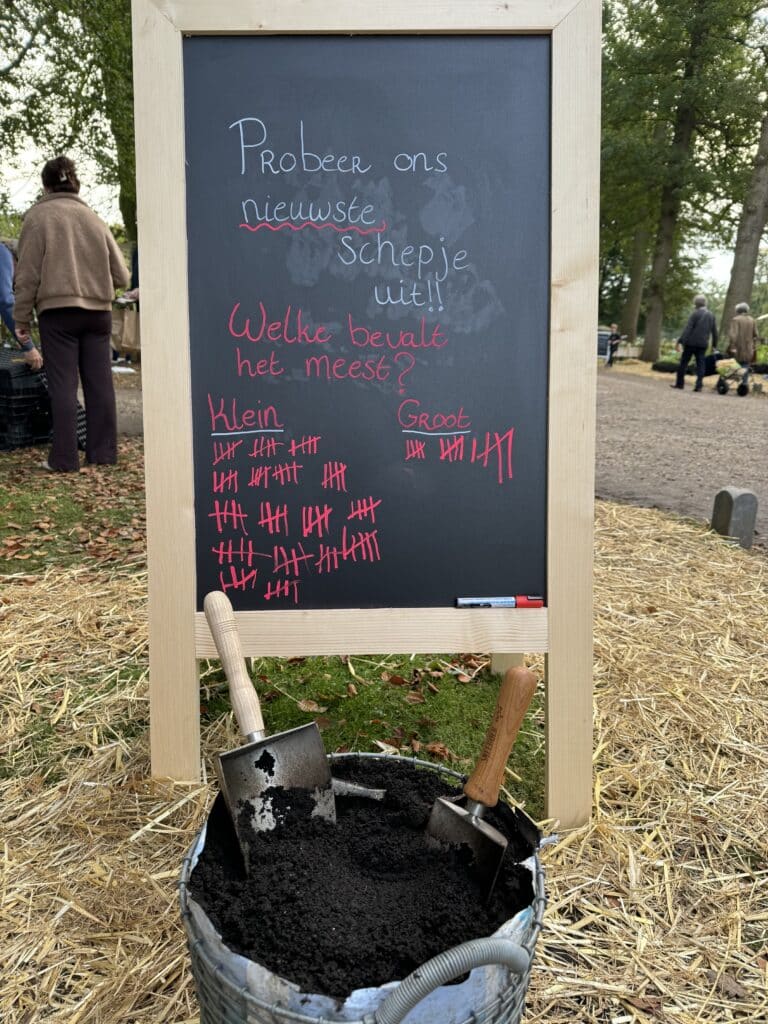 Probeer ons
nieuwste
schepje
uit!!
Welke bevalt
het meest?
Klein
Groot